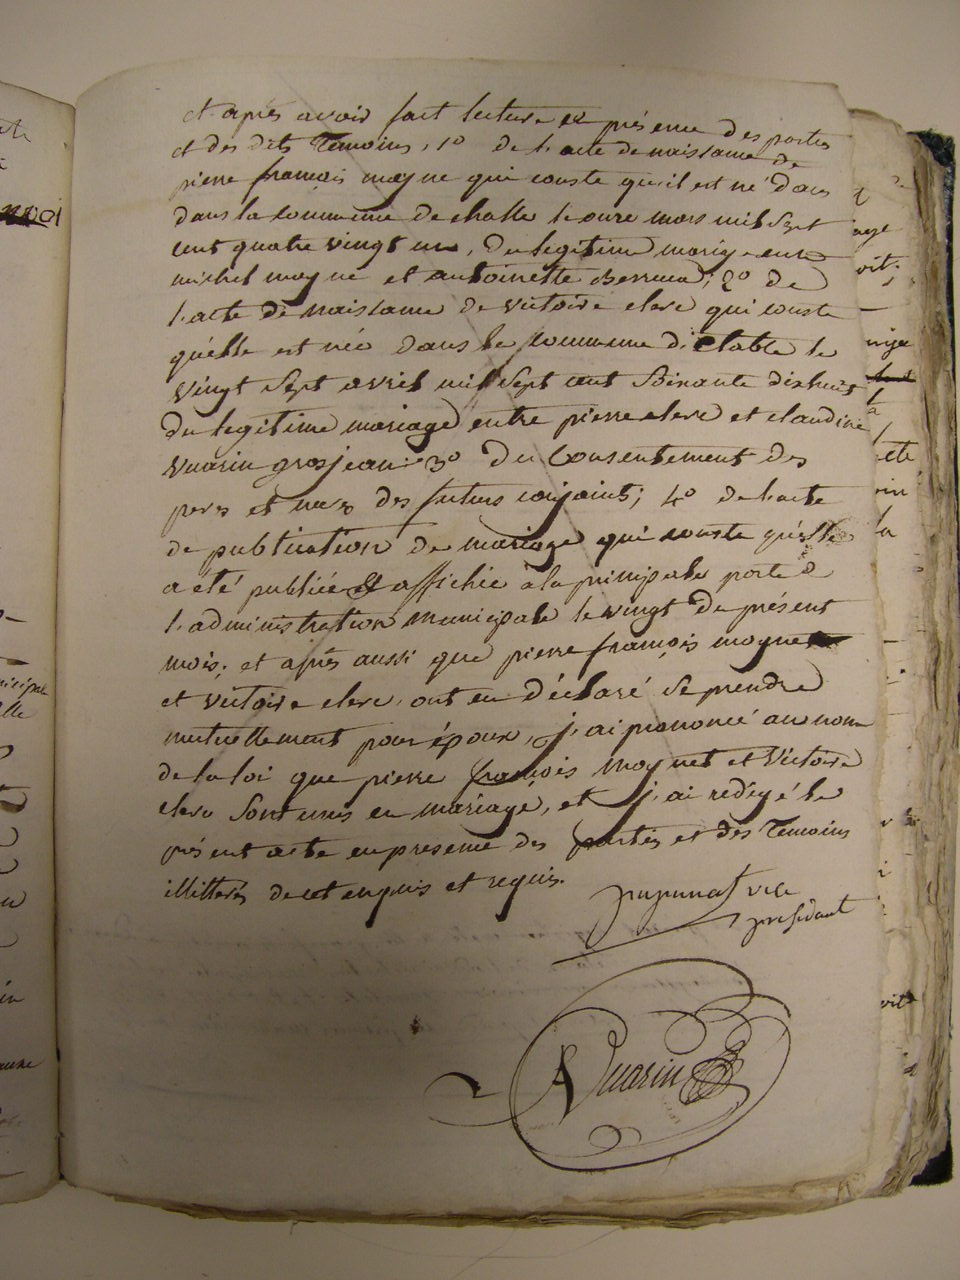 et après avoir fait lecture en présence des parties
et des dits Temoins, 1° de l'acte de naissance de
pierre françois moyne qui conste qu'il est né dans
dans la commune de challe le onze mars mil sept
cent quatre vingt un, du legitime mariage entre
michel moyne et antoinette ; 2° de
l'acte de naissance de victoire clerc qui conste
qu'elle est née dans la commune d'Etable le
vingt sept avril mil sept cent soixante dixhuit
du legitime mariage entre pierre clerc et claudine
Vuarin grosjean 3° du Consentement des
peres et meres des futurs conjoints; 4° de l'acte
de publication de mariage qui conste qu'elle
a été publiée et affichée a la principale porte de
l'administration municipale le vingt du présent
mois; et après aussi que pierre françois moynet
et victoire clerc ont eu déclaré se prendre
mutuellement pour époux, j'ai prononcé au nom
de la loi que pierre françois moynet et Victoire
clerc sont unis en mariage, et j'ai redigé le
présent acte en presence des parties et des Temoins
illitterés de cet enquis et requis.
vice
president
Vuarin